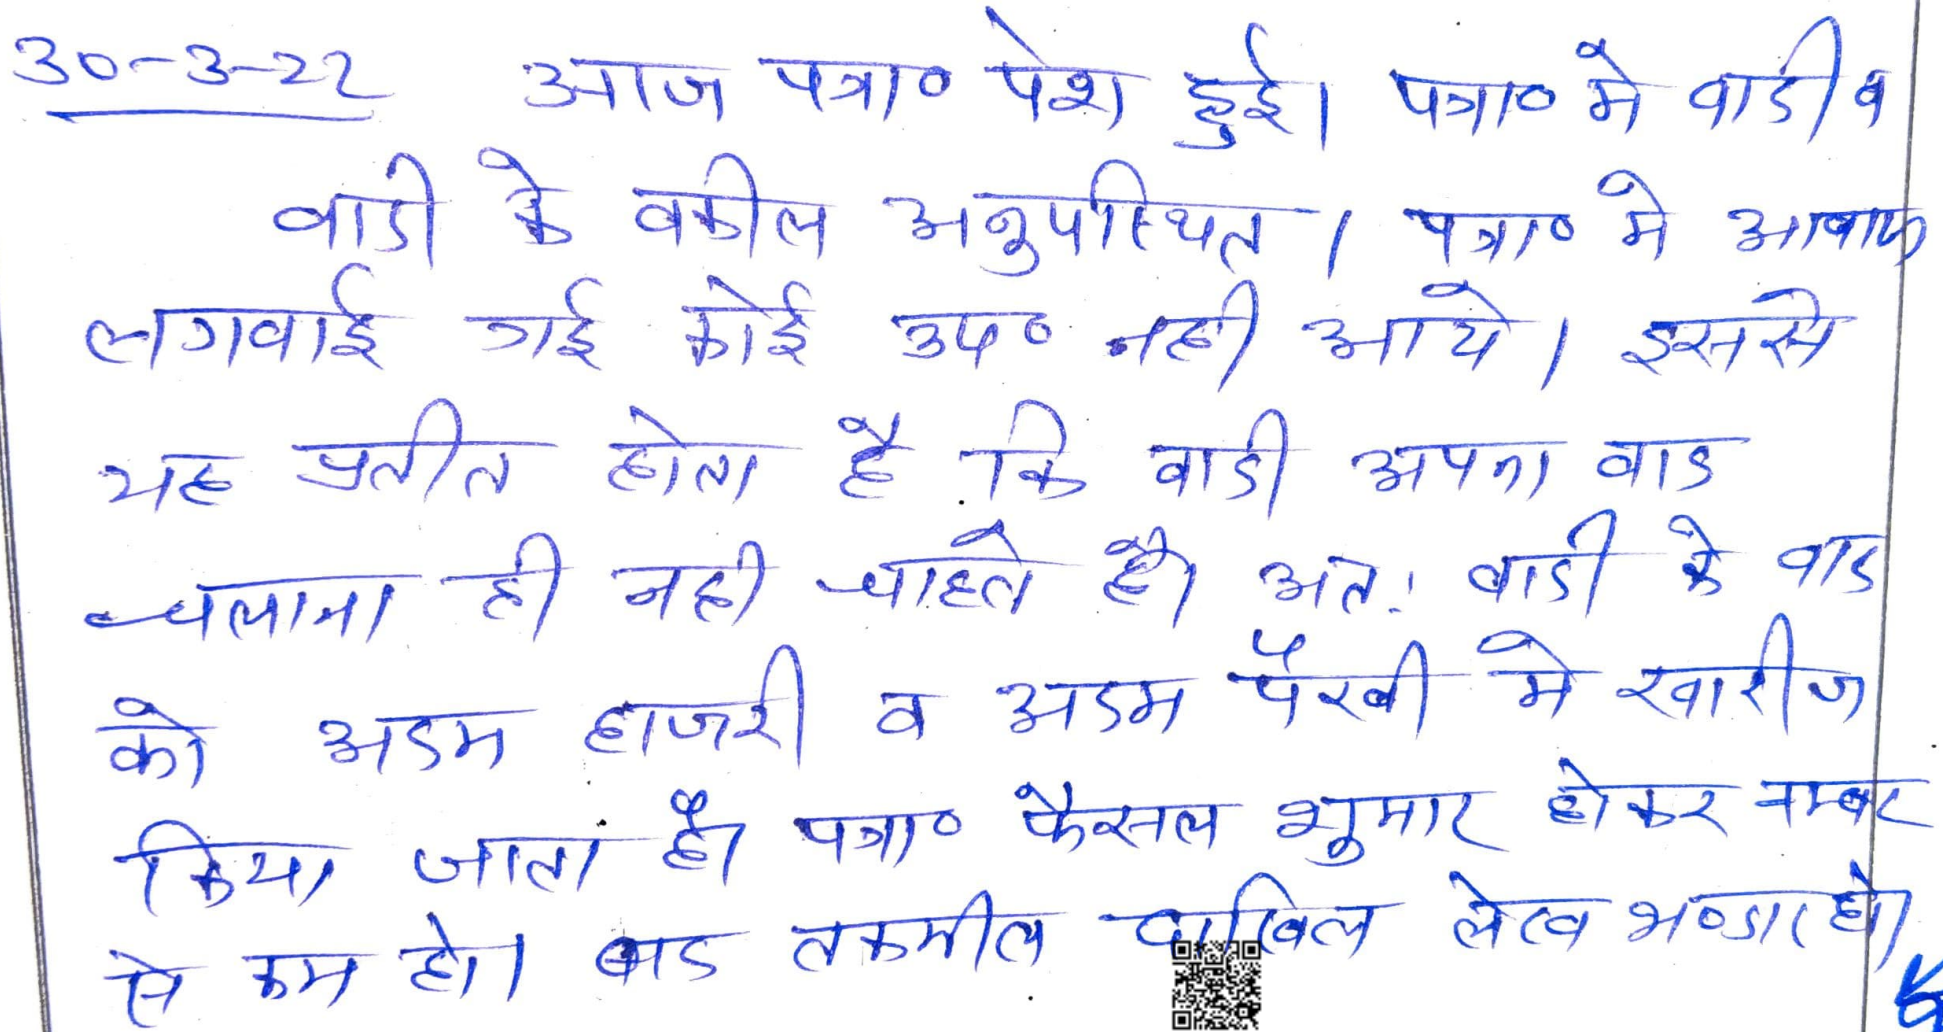 30-3-22 आज पत्रा० पेश हुई। पत्रा० मे वादी व
वादी के वकील अनुपस्थित। पत्रा० मे आवाज
लगवाई गई कोई उप० नही आये। इससे
यह प्रतीत होता है कि वादी अपना वाद
चलाना ही नही चाहते है। अत: वादी के वाद
को अदम हाजरी व अदम पैरवी मे खारीज
किया जाता है। पत्रा० फैसल शुमार होकर नम्बर
से कम हो। बाद तकमील दाखिल लेख भण्डार हो।